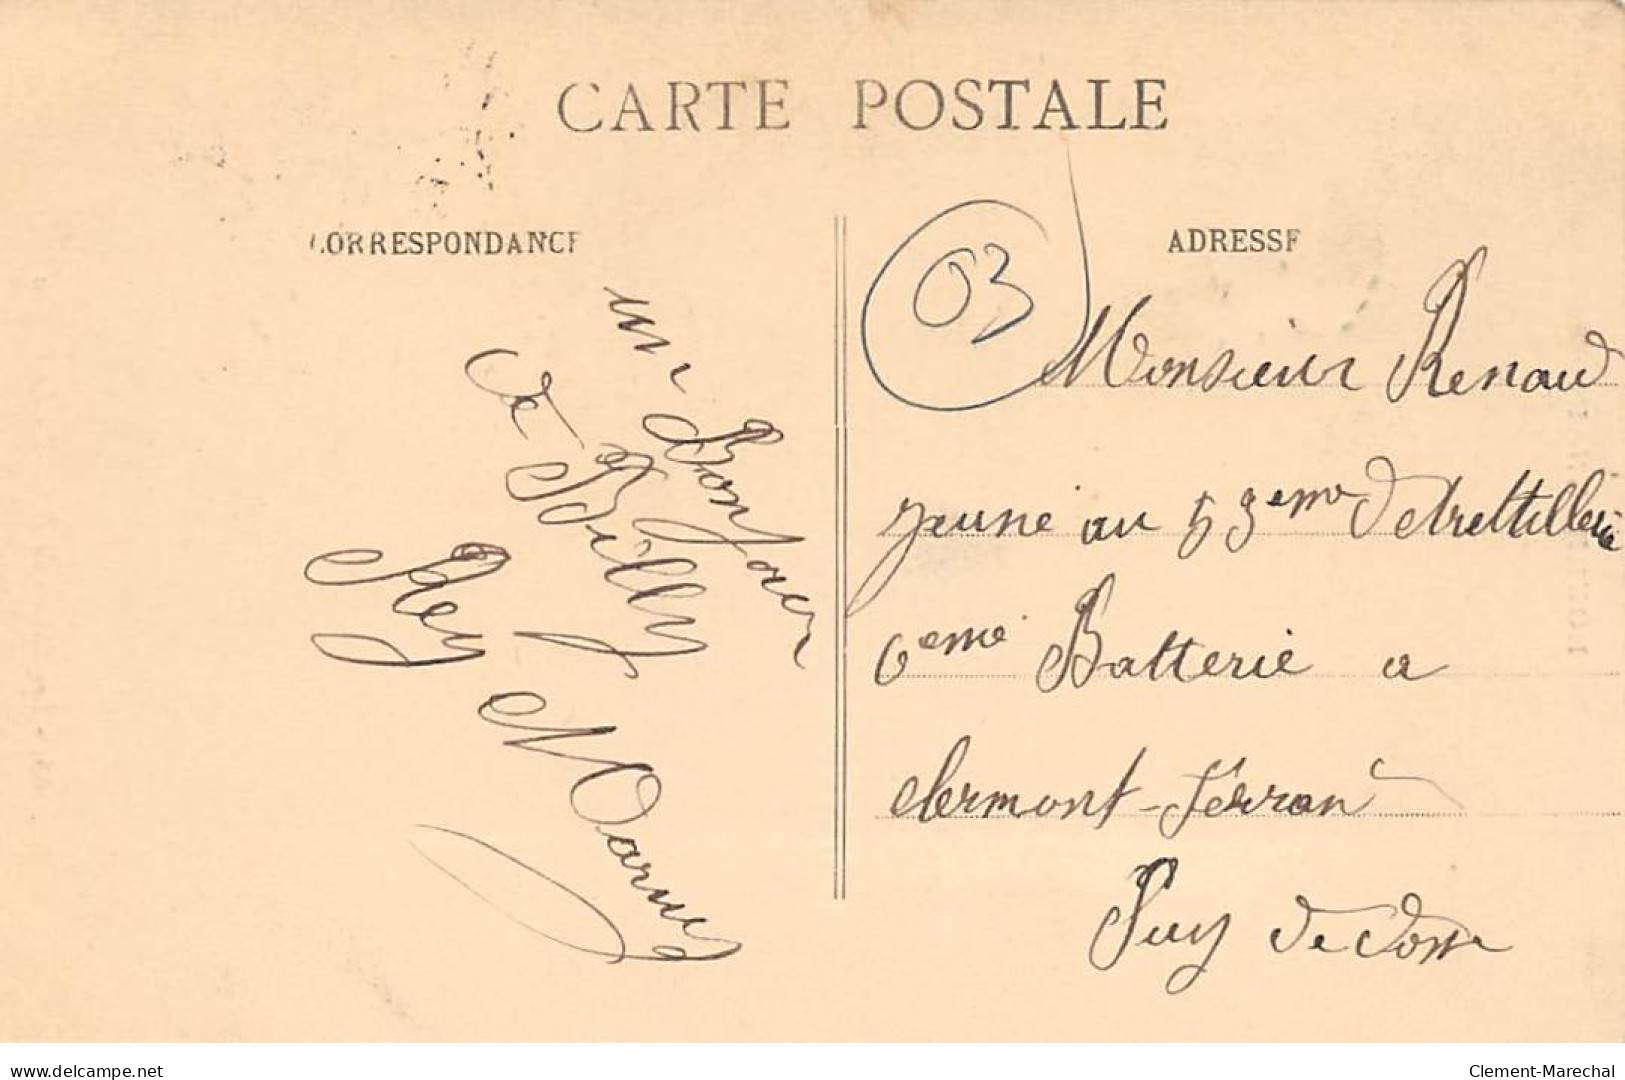 CARTE POSTALE
CORRESPONDANCE
un Bonjour
de Billy
Rey
ADRESSE
03
Monsieur Renaud
jeune au 53eme d'artellerie
6eme Batterie a
clermont-Férran
Puy de dome
www.delcampe.net
Clement-Marechal